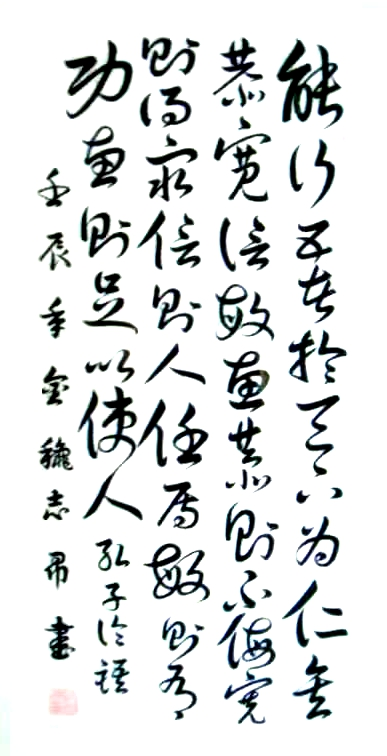 能行五者於天下為仁矣
恭寬信敏惠恭則不侮寬
則得眾信則人任焉敏則有
功惠則足以使人孔子論語
壬辰年金志書